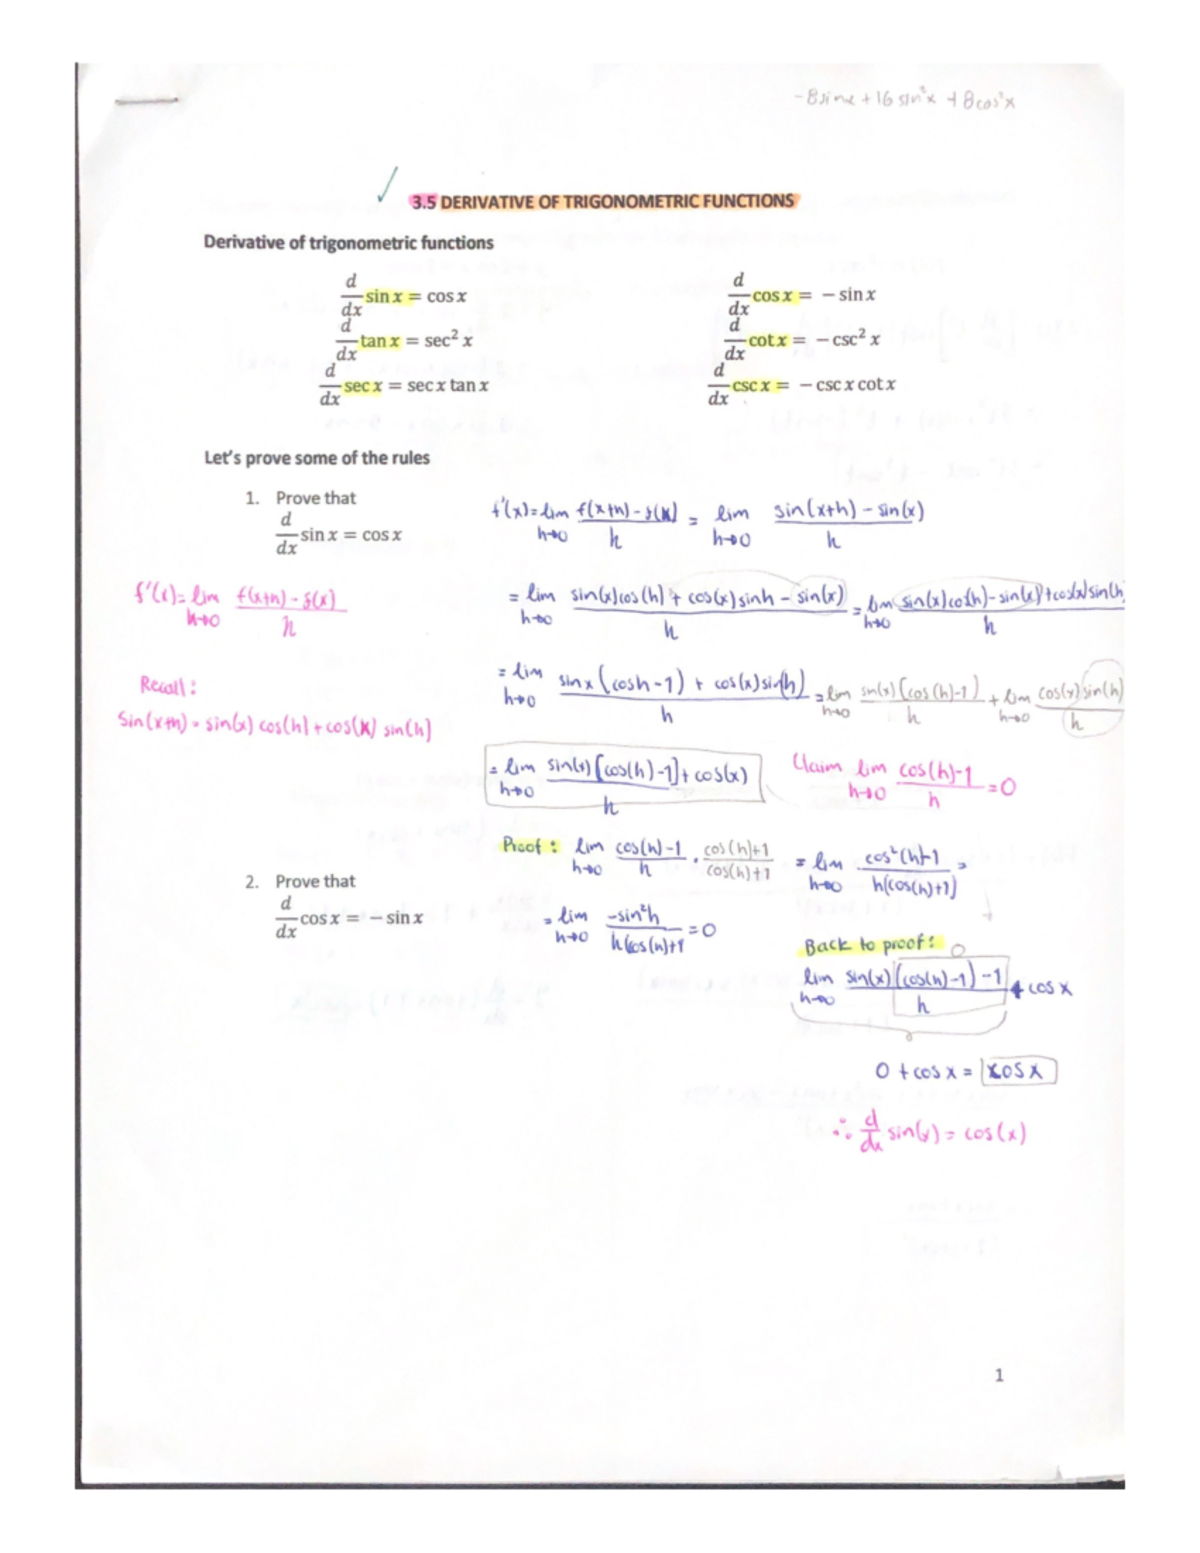 -8sinx + 16 sin²x + 8cos²x
3.5 DERIVATIVE OF TRIGONOMETRIC FUNCTIONS
Derivative of trigonometric functions
d/dx sin x = cos x
d/dx cos x = − sin x
d/dx tan x = sec² x
d/dx cot x = − csc² x
d/dx sec x = sec x tan x
d/dx csc x = − csc x cot x
Let's prove some of the rules
1. Prove that
d/dx sin x = cos x
f'(x) = lim h→0 f(x+h) - f(x) / h = lim h→0 sin(x+h) - sin(x) / h
f'(x) = lim h→0 f(x+h) - f(x) / h
= lim h→0 sin(x)cos(h) + cos(x)sinh - sin(x) / h = lim h→0 sin(x)cos(h) - sin(x) + cos(x)sin(h) / h
Recall:
Sin(x+h) = sin(x) cos(h) + cos(x) sin(h)
= lim h→0 sinx (cosh-1) + cos(x)sin(h) / h = lim h→0 sin(x)(cos(h)-1) / h + lim h→0 cos(x)sin(h) / h
= lim h→0 sin(x)[cos(h)-1] + cos(x) / h
Claim lim h→0 cos(h)-1 / h = 0
Proof: lim h→0 cos(h)-1 / h · cos(h)+1 / cos(h)+1 = lim h→0 cos²(h)-1 / h(cos(h)+1) =
2. Prove that
d/dx cos x = − sin x
= lim h→0 -sin²h / h(cos(h)+1 = 0
Back to proof: 0
lim h→0 sin(x)(cos(h)-1) - 1 / h + cos x
0
0 + cos x = cos x
∴ d/dx sin(x) = cos(x)
1